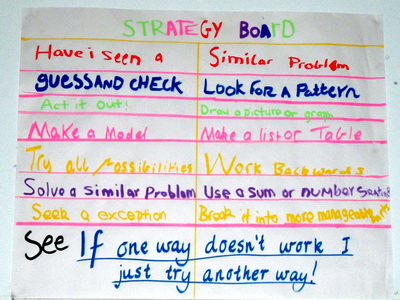 STRATEGY BoARD
Have i seen a Similar Problem
GUESS AND CHECK Look For A Pattern
Act it out! Draw a picture or graph
Make a Model Make a list or Table
Try all Possibilities Work Backwards
Solve a Similar Problem Use a Sum or number Sentence
Seek a exception Break it into more manageable parts
See If one way doesn't work I
just try another way!